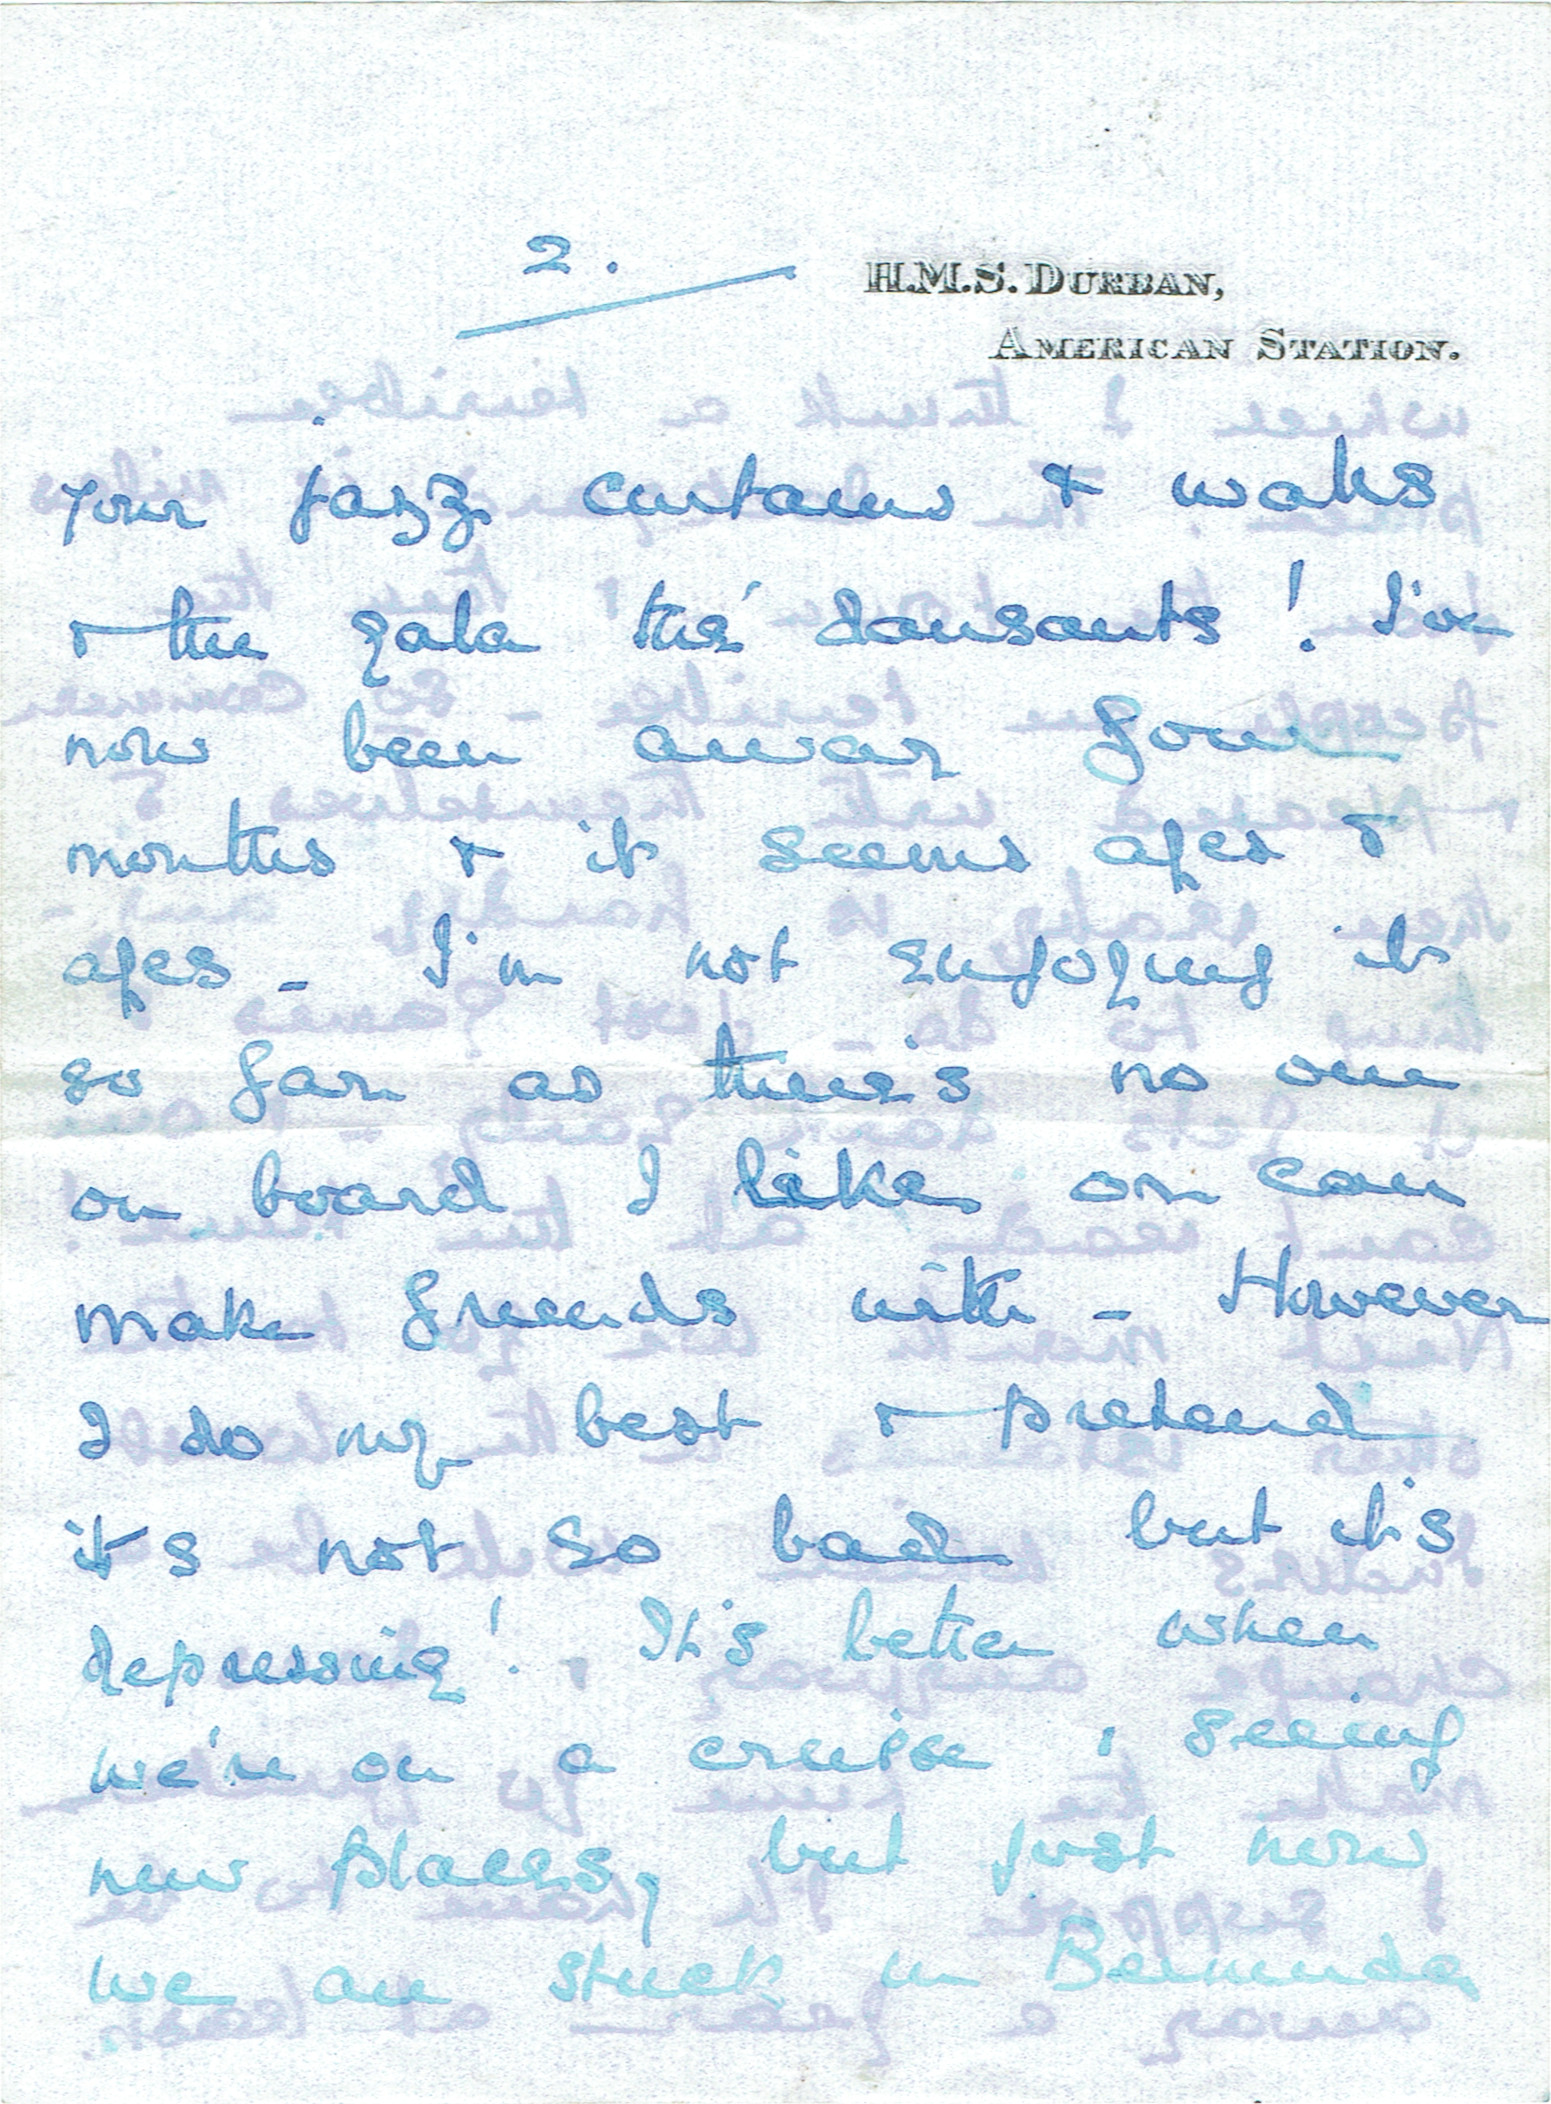 2.
H.M.S. DURBAN,
AMERICAN STATION.
your jazz curtains & walls
& the gala thé dansants! I've
now been away four
months & it seems ages &
ages - I'm not enjoying it
so far as there's no one
on board I like or can
make friends with - However
I do my best & pretend
it's not so bad but it's
depressing! . It's better when
we're on a cruise , seeing
new places, but just now
we are stuck in Bermuda